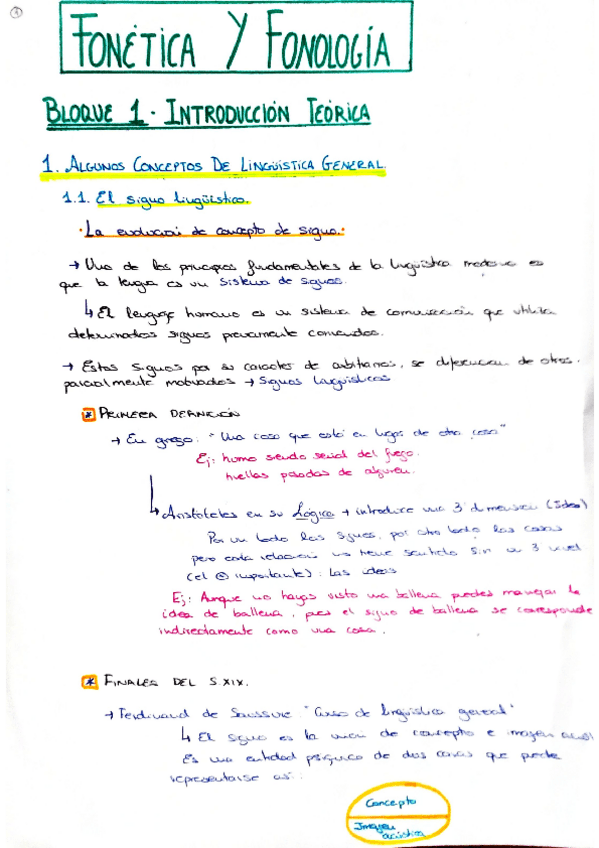 1
FONÉTICA Y FONOLOGÍA
BLOQUE 1. INTRODUCCIÓN TEÓRICA
1. ALGUNOS CONCEPTOS DE LINGÜÍSTICA GENERAL.
1.1. El signo lingüístico.
· La evolución de concepto de signo.·
→ Uno de los principios fundamentales de la lingüística moderna es
que la lengua es un sistema de signos.
↳ El lenguaje humano es un sistema de comunicación que utiliza
determinados signos previamente conocidos.
→ Estos signos por su carácter de arbitrarios, se diferencian de otros
parcialmente motivados → Signos lingüísticos
* PRIMERA DEFINICIÓN
→ En griego: "Una cosa que está en lugar de otra cosa"
Ej: humo siendo señal del fuego.
huellas pasadas de alguien.
↳ Aristóteles en su Lógica → introduce una 3ª dimensión (Idea)
Por un lado los signos, por otro lado las cosas
pero cada relación no tiene sentido sin un 3 nivel
(el importante): las ideas
Ej: Aunque no hayas visto una ballena puedes manejar la
idea de ballena, pues el signo de ballena se corresponde
indirectamente como una cosa.
* FINALES DEL S.XIX.
→ Ferdinand de Saussure. "Curso de lingüística general"
↳ El signo es la unión de concepto e imagen
Es una entidad psíquica de dos caras que puede
representarse así:
Concepto
Imagen
acústica